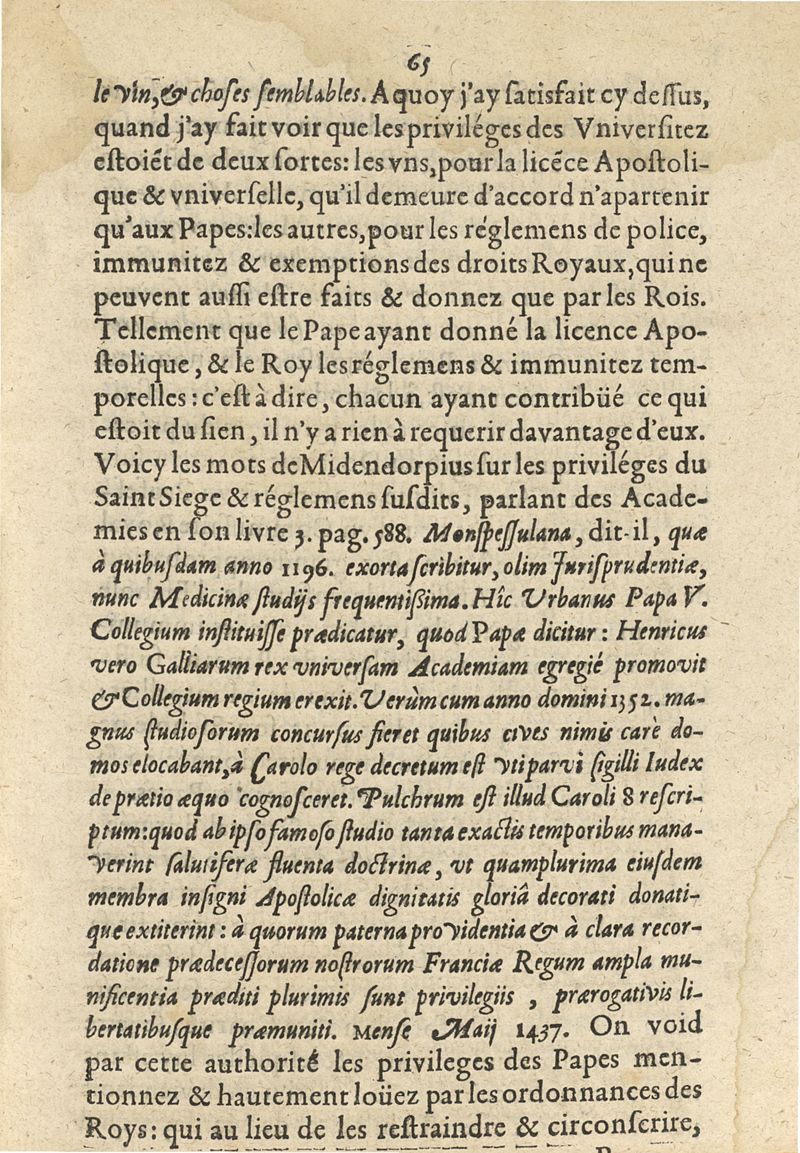 65
le vin, & choses semblables. A quoy j'ay ſatisfait cy deſſus,
quand j'ay fait voir que les priviléges des Vniverſitez
eſtoiẽt de deux ſortes: les vns, pour la licẽce Apoſtoli-
que & vniverſelle, qu'il demeure d'accord n'apartenir
qu'aux Papes: les autres, pour les réglemens de police,
immunitez & exemptions des droits Royaux, qui ne
peuvent auſſi eſtre faits & donnez que par les Rois.
Tellement que le Pape ayant donné la licence Apo-
ſtolique, & le Roy les réglemens & immunitez tem-
porelles: c'eſt à dire, chacun ayant contribüé ce qui
eſtoit du ſien, il n'y a rien à requerir davantage d'eux.
Voicy les mots de Midendorpius ſur les priviléges du
Saint Siege & réglemens ſuſdits, parlant des Acade-
mies en ſon livre 3. pag. 588. Monſpeſſulana, dit-il, quæ
à quibuſdam anno 1196. exorta ſcribitur, olim Juriſprudentiæ,
nunc Medicinæ ſtudijs frequentißima. Hîc Urbanus Papa V.
Collegium inſtituiſſe prædicatur, quod Papæ dicitur: Henricus
vero Galliarum rex vniverſam Academiam egregié promovit
& Collegium regium erexit. Verùm cum anno domini 1352. ma-
gnus ſtudioſorum concurſus fieret quibus cives nimis carè do-
mos elocabant, à Carolo rege decretum eſt vti parvi ſigilli Iudex
de prætio æquo cognoſceret. Pulchrum eſt illud Caroli 8 reſcri-
ptum: quod ab ipſo famoſo ſtudio tanta exactis temporibus mana-
verint ſalutiferæ fluenta doctrinæ, vt quamplurima eiuſdem
membra inſigni Apoſtolicæ dignitatis gloriâ decorati donati-
que extiterint: à quorum paterna providentia & à clara recor-
datione prædeceſſorum noſtrorum Franciæ Regum ampla mu-
nificentia præditi plurimis ſunt privilegiis, prærogativis li-
bertatibuſque præmuniti. Menſe Maij 1437. On void
par cette authorité les privileges des Papes men-
tionnez & hautement loüez par les ordonnances des
Roys: qui au lieu de les reſtraindre & circonſcrire,